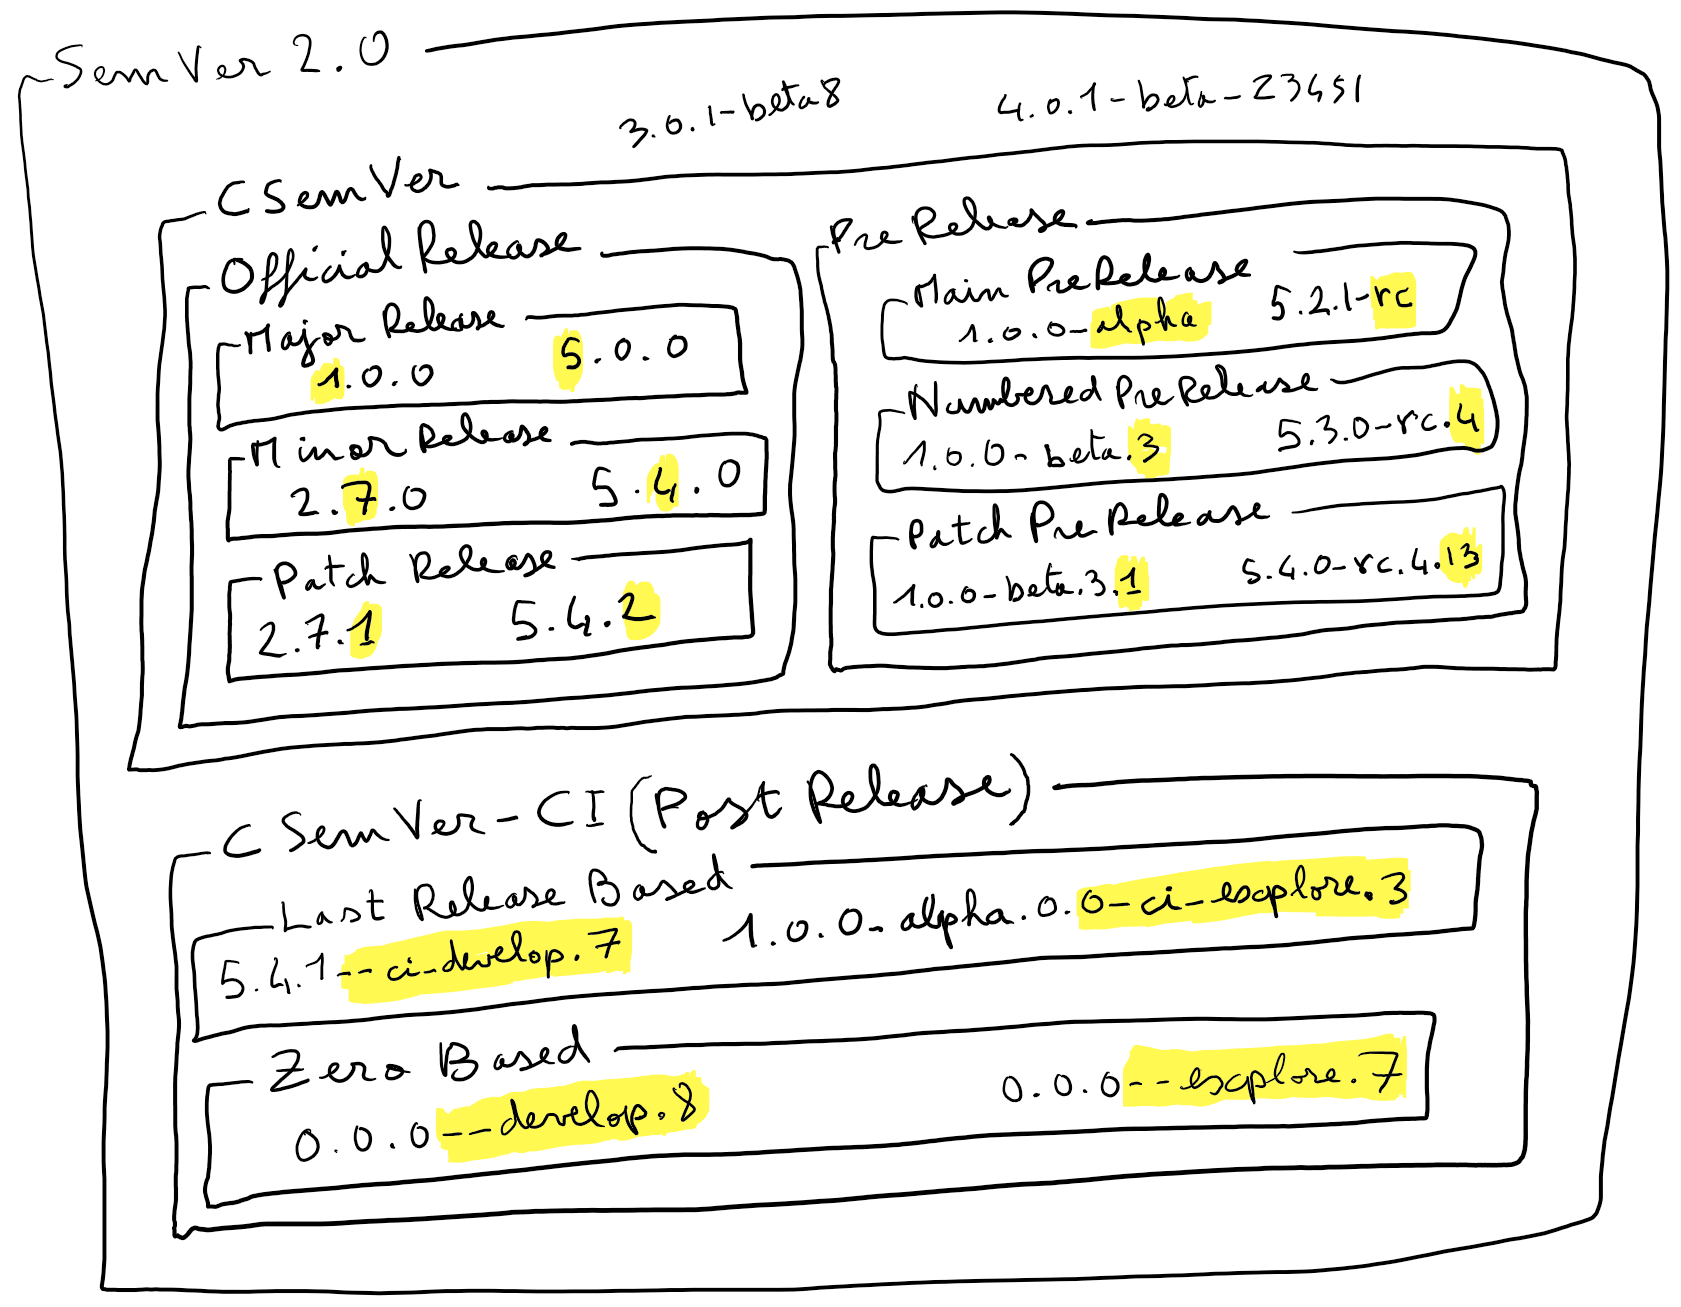 SemVer 2.0
3.0.1-beta8
4.0.1-beta-23451
CSemVer
Official Release
Major Release
1.0.0
5.0.0
Minor Release
2.7.0
5.4.0
Patch Release
2.7.1
5.4.2
PreRelease
Main PreRelease
1.0.0-alpha
5.2.1-rc
Numbered PreRelease
1.0.0-beta.3
5.3.0-rc.4
Patch PreRelease
1.0.0-beta.3.1
5.4.0-rc.4.13
CSemVer-CI (Post Release)
Last Release Based
5.4.1--ci-develop.7
1.0.0-alpha.0.0-ci-explore.3
Zero Based
0.0.0--develop.8
0.0.0--explore.7